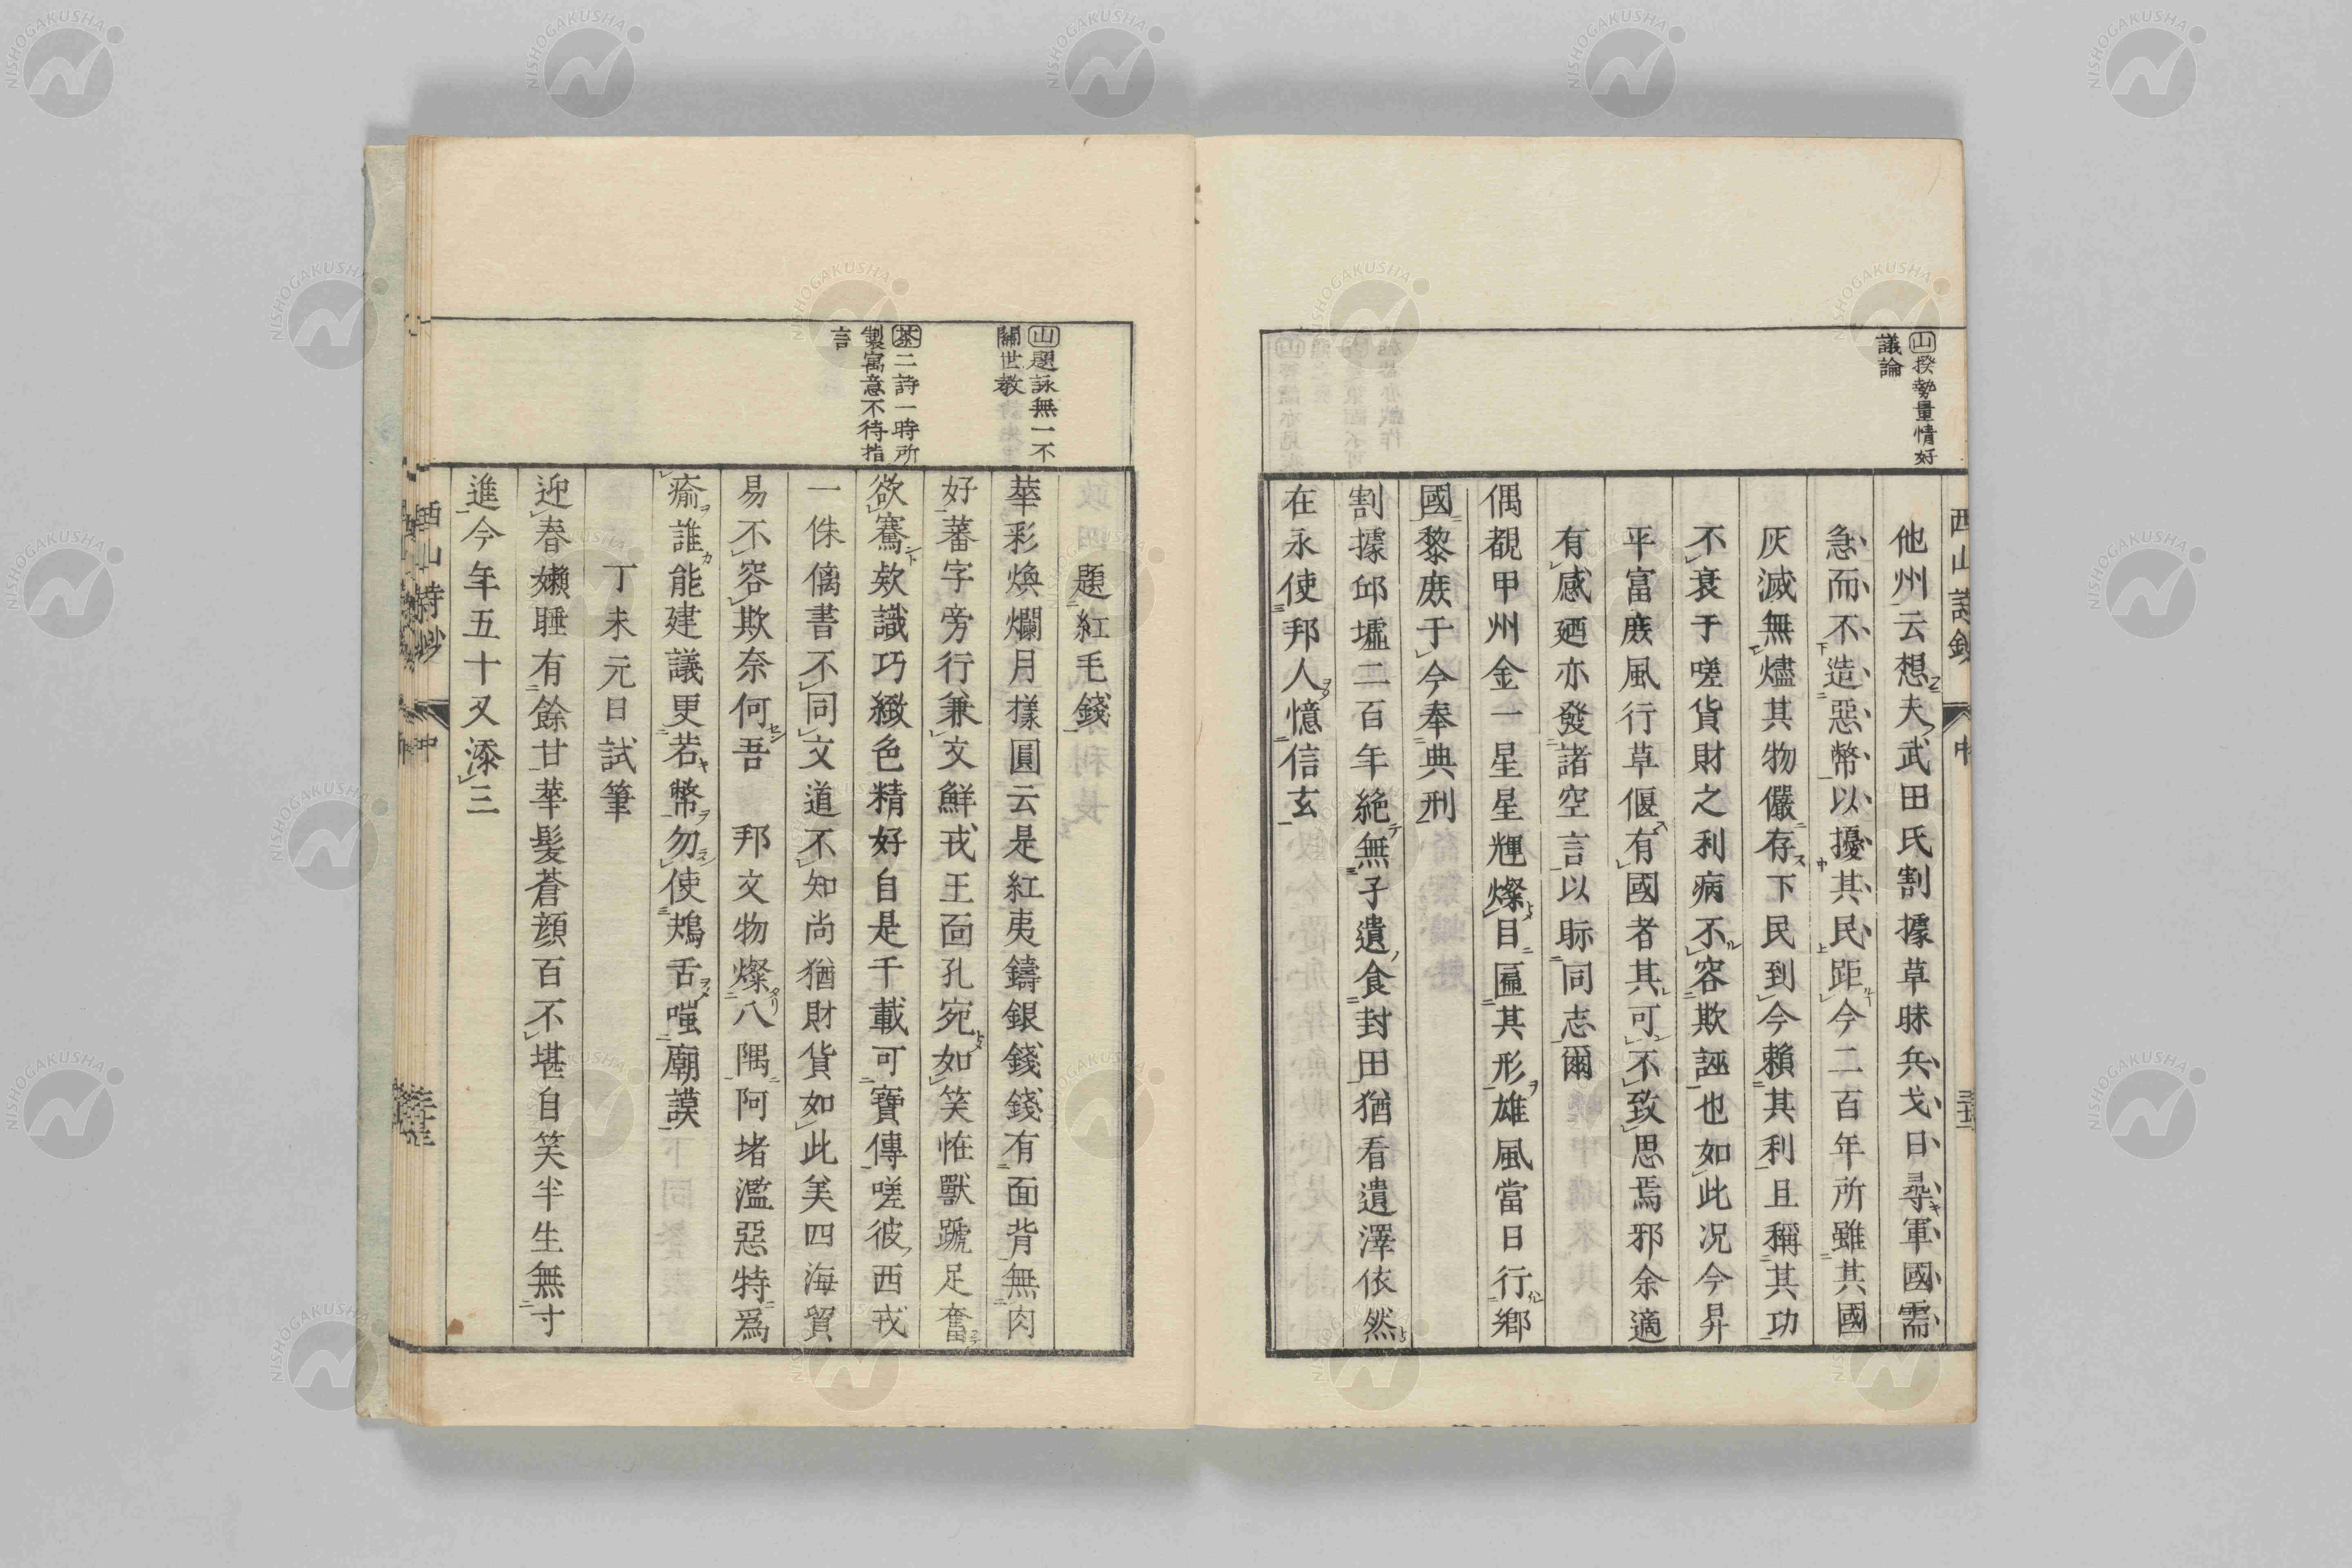 山揆勢量情好
議論
西山詩鈔 中
他州云想夫武田氏割據草昧兵戈日尋軍國需
急而不造惡幣以擾其民距今二百年所雖其國
灰滅無燼其物儼存下民到今賴其利且稱其功
不衰于嗟貨財之利病不容欺誣也如此况今昇
平富庶風行草偃有國者其可不致思焉邪余適
有感廼亦發諸空言以眎同志爾
偶覩甲州金一星星輝燦目匾其形雄風當日行鄉
國黎庶于今奉典刑
割據邱墟二百年絶無子遺食封田猶看遺澤依然
在永使邦人憶信玄
山題詠無一不
關世教
茶二詩一時所
製寓意不待指
言
題紅毛錢
華彩煥爛月樣圓云是紅夷鑄銀錢錢有面背無肉
好蕃字旁行兼文鮮戎王面孔宛如笑恠獸蹏足奮
欲騫欸識巧緻色精好自是千載可寶傳嗟彼西戎
一侏㒧書不同文道不知尚猶財貨如此美四海貿
易不容欺奈何吾 邦文物燦八隅阿堵濫惡特爲
瘉誰能建議更若幣勿使鴂舌嗤廟謨
丁未元日試筆
迎春嬾睡有餘甘華髮蒼顔百不堪自笑半生無寸
進今年五十又添三
西山詩鈔 中